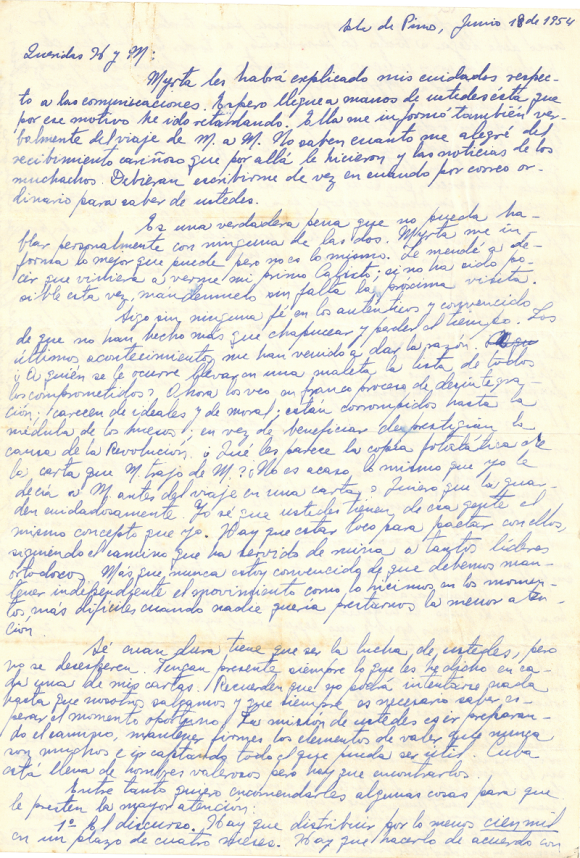 Isla de Pinos, Junio 18 de 1954
Queridas H y M:
Myrta les habrá explicado mis cuidados respec-
to a las comunicaciones. Espero llegue a manos de ustedes ésta que
por ese motivo he ido retardando. Ella me informó también ver-
balmente del viaje de M. a M. No saben cuanto me alegré del
recibimiento cariñoso que por allá le hicieron y las noticias de los
muchachos. Debieran escribirme de vez en cuando por correo or-
dinario para saber de ustedes.
Es una verdadera pena que no pueda ha-
blar personalmente con ninguna de las dos. Myrta me in-
forma lo mejor que puede pero no es lo mismo. Le mandé a de-
cir que viniera a verme mi primo; si no ha sido po-
sible esta vez, mándenmelo sin falta la próxima visita.
Sigo sin ninguna fé en los auténticos y convencido
de que no han hecho más que chapucear y perder el tiempo. Los
últimos acontecimientos me han venido a dar la razón.
¡A quién se le ocurre llevar en una maleta la lista de todos
los comprometidos! Ahora los ves en franco proceso de desintegra-
ción; carecen de ideales y de moral; están corrompidos hasta la
médula de los huesos; en vez de beneficiar desprestigian la
causa de la Revolución. ¿Qué les parece la copia fotostática de
la carta que M. trajo de M? ¿No es acaso lo mismo que yo le
decía a M antes del viaje en una carta? Quiero que la guar-
den cuidadosamente. Yo sé que ustedes tienen de esa gente el
mismo concepto que yo. Hay que estar loco para pactar con ellos,
siguiendo el camino que ha servido de ruina a tantos líderes
ortodoxos. Más que nunca estoy convencido de que debemos man-
tener independiente el movimiento como lo hicimos en los momen-
tos más difíciles cuando nadie quería prestarnos la menor aten-
ción.
Sé cuan dura tiene que ser la lucha de ustedes, pero
no se desesperen. Tengan presente siempre lo que les he dicho en ca-
da una de mis cartas. ¡Recuerden que no podrá intentarse nada
hasta que nosotros salgamos y que siempre es necesario saber es-
perar el momento oportuno! La misión de ustedes es ir preparan-
do el campo, mantener firmes los elementos de valer que nunca
son muchos e ir captando todo el que pueda ser útil. Cuba
está llena de hombres valerosos pero hay que encontrarlos.
Entre tanto quiero encomendarles algunas cosas para que
le presten la mayor atención:
1º El discurso. Hay que distribuir por lo menos cien mil
en un plazo de cuatro meses. Hay que hacerlo de acuerdo con